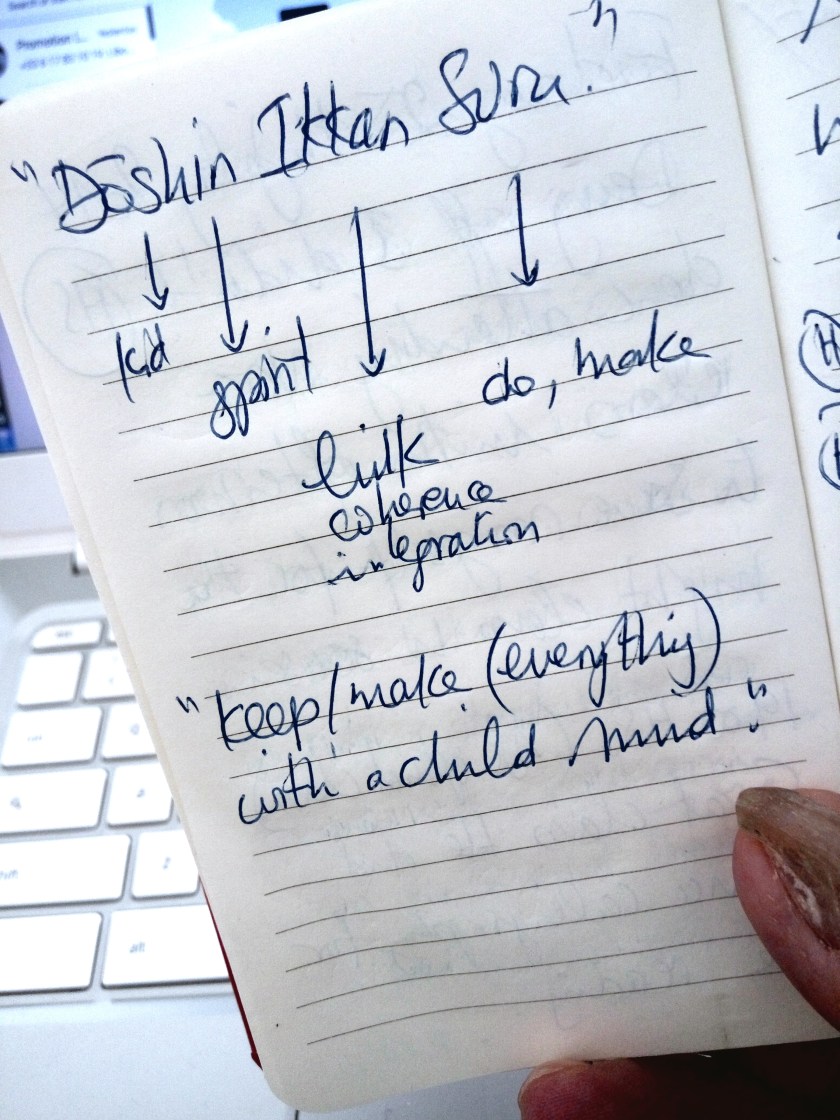 "Dōshin Ikkan Suru."
kid
spirit
do, make
link
coherence
integration
"keep/make (everything)
with a child mind."
alt